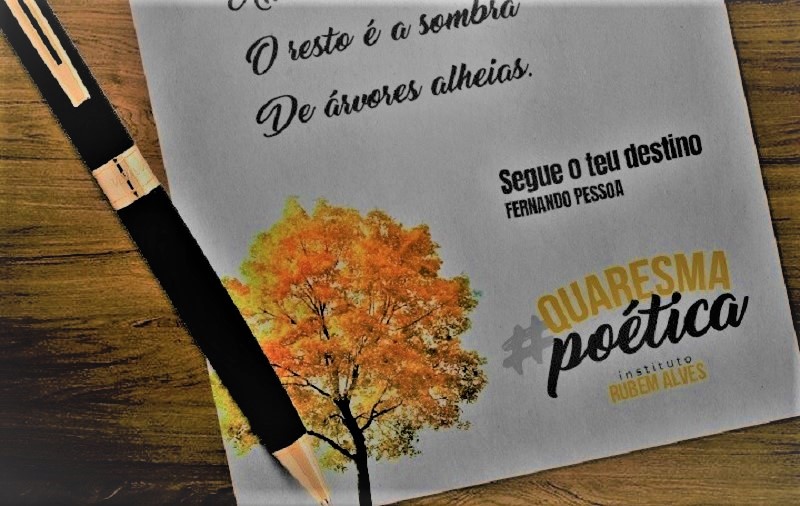 O resto é a sombra
De árvores alheias.
Segue o teu destino
FERNANDO PESSOA
#QUARESMA
poética
instituto
RUBEM ALVES